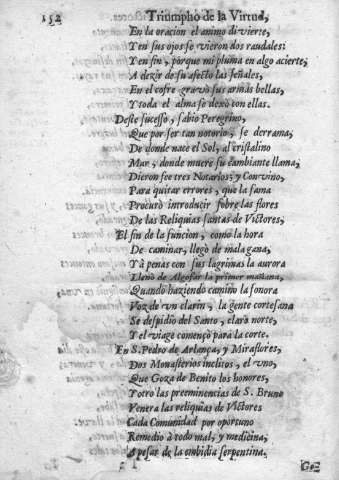 152 Triumpho de la Virtud,
En la oracion el animo divierte,
Y en sus ojos se vieron dos raudales:
Y en fin, porque mi pluma en algo acierte,
A dezir de su afecto las señales,
En el cofre gravò sus armas bellas,
Y toda el alma se dexò con ellas.
Deste sucesso, sabio Peregrino,
Que por ser tan notorio, se derrama,
De donde nace el Sol, al cristalino
Mar, donde muere su cambiante llama,
Dieron fee tres Notarios; y convino,
Para quitar errores, que la fama
Procurò introducir sobre las flores
De las Reliquias santas de Victores.
El fin de la funcion, como la hora
De caminar, llegò de mala gana,
Y à penas con sus lagrimas la aurora
Llenò de Algofar la primer mañana,
Quando haziendo camino la sonora
Voz de vn clarin, la gente cortesana
Se despidio del Santo, claro norte,
Y el viage començò para la corte.
En S. Pedro de Arlança, y Miraflores,
Dos Monasterios inclitos, el vno,
Que Goza de Benito los honores,
Y otro las preeminencias de S. Bruno
Venera las reliquias de Victores
Cada Comunidad por oportuno
Remedio à todo mal, y medicina,
A pesar de la embidia serpentina.
Go-